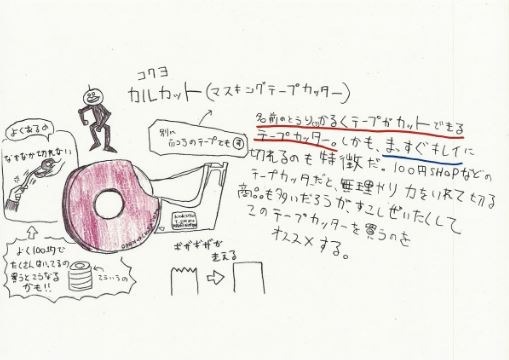 コクヨ
カルカット(マスキングテープカッター)
名前のとうりかるくテープがカットできる
テープカッター。しかも、まっすぐキレイに
切れるのも特徴だ。100円SHOPなどの
テープカッタだと、無理やり力をいれて切る
商品も多いだろうが、すこしぜいたくして
このテープカッターを買うのを
オススメする。
よくあるの
なかなか切れない
別に
のテープでも
よく100均で
たくさんはいってるの
買うとこうなる
かも!!
こういうの
ギザギザが